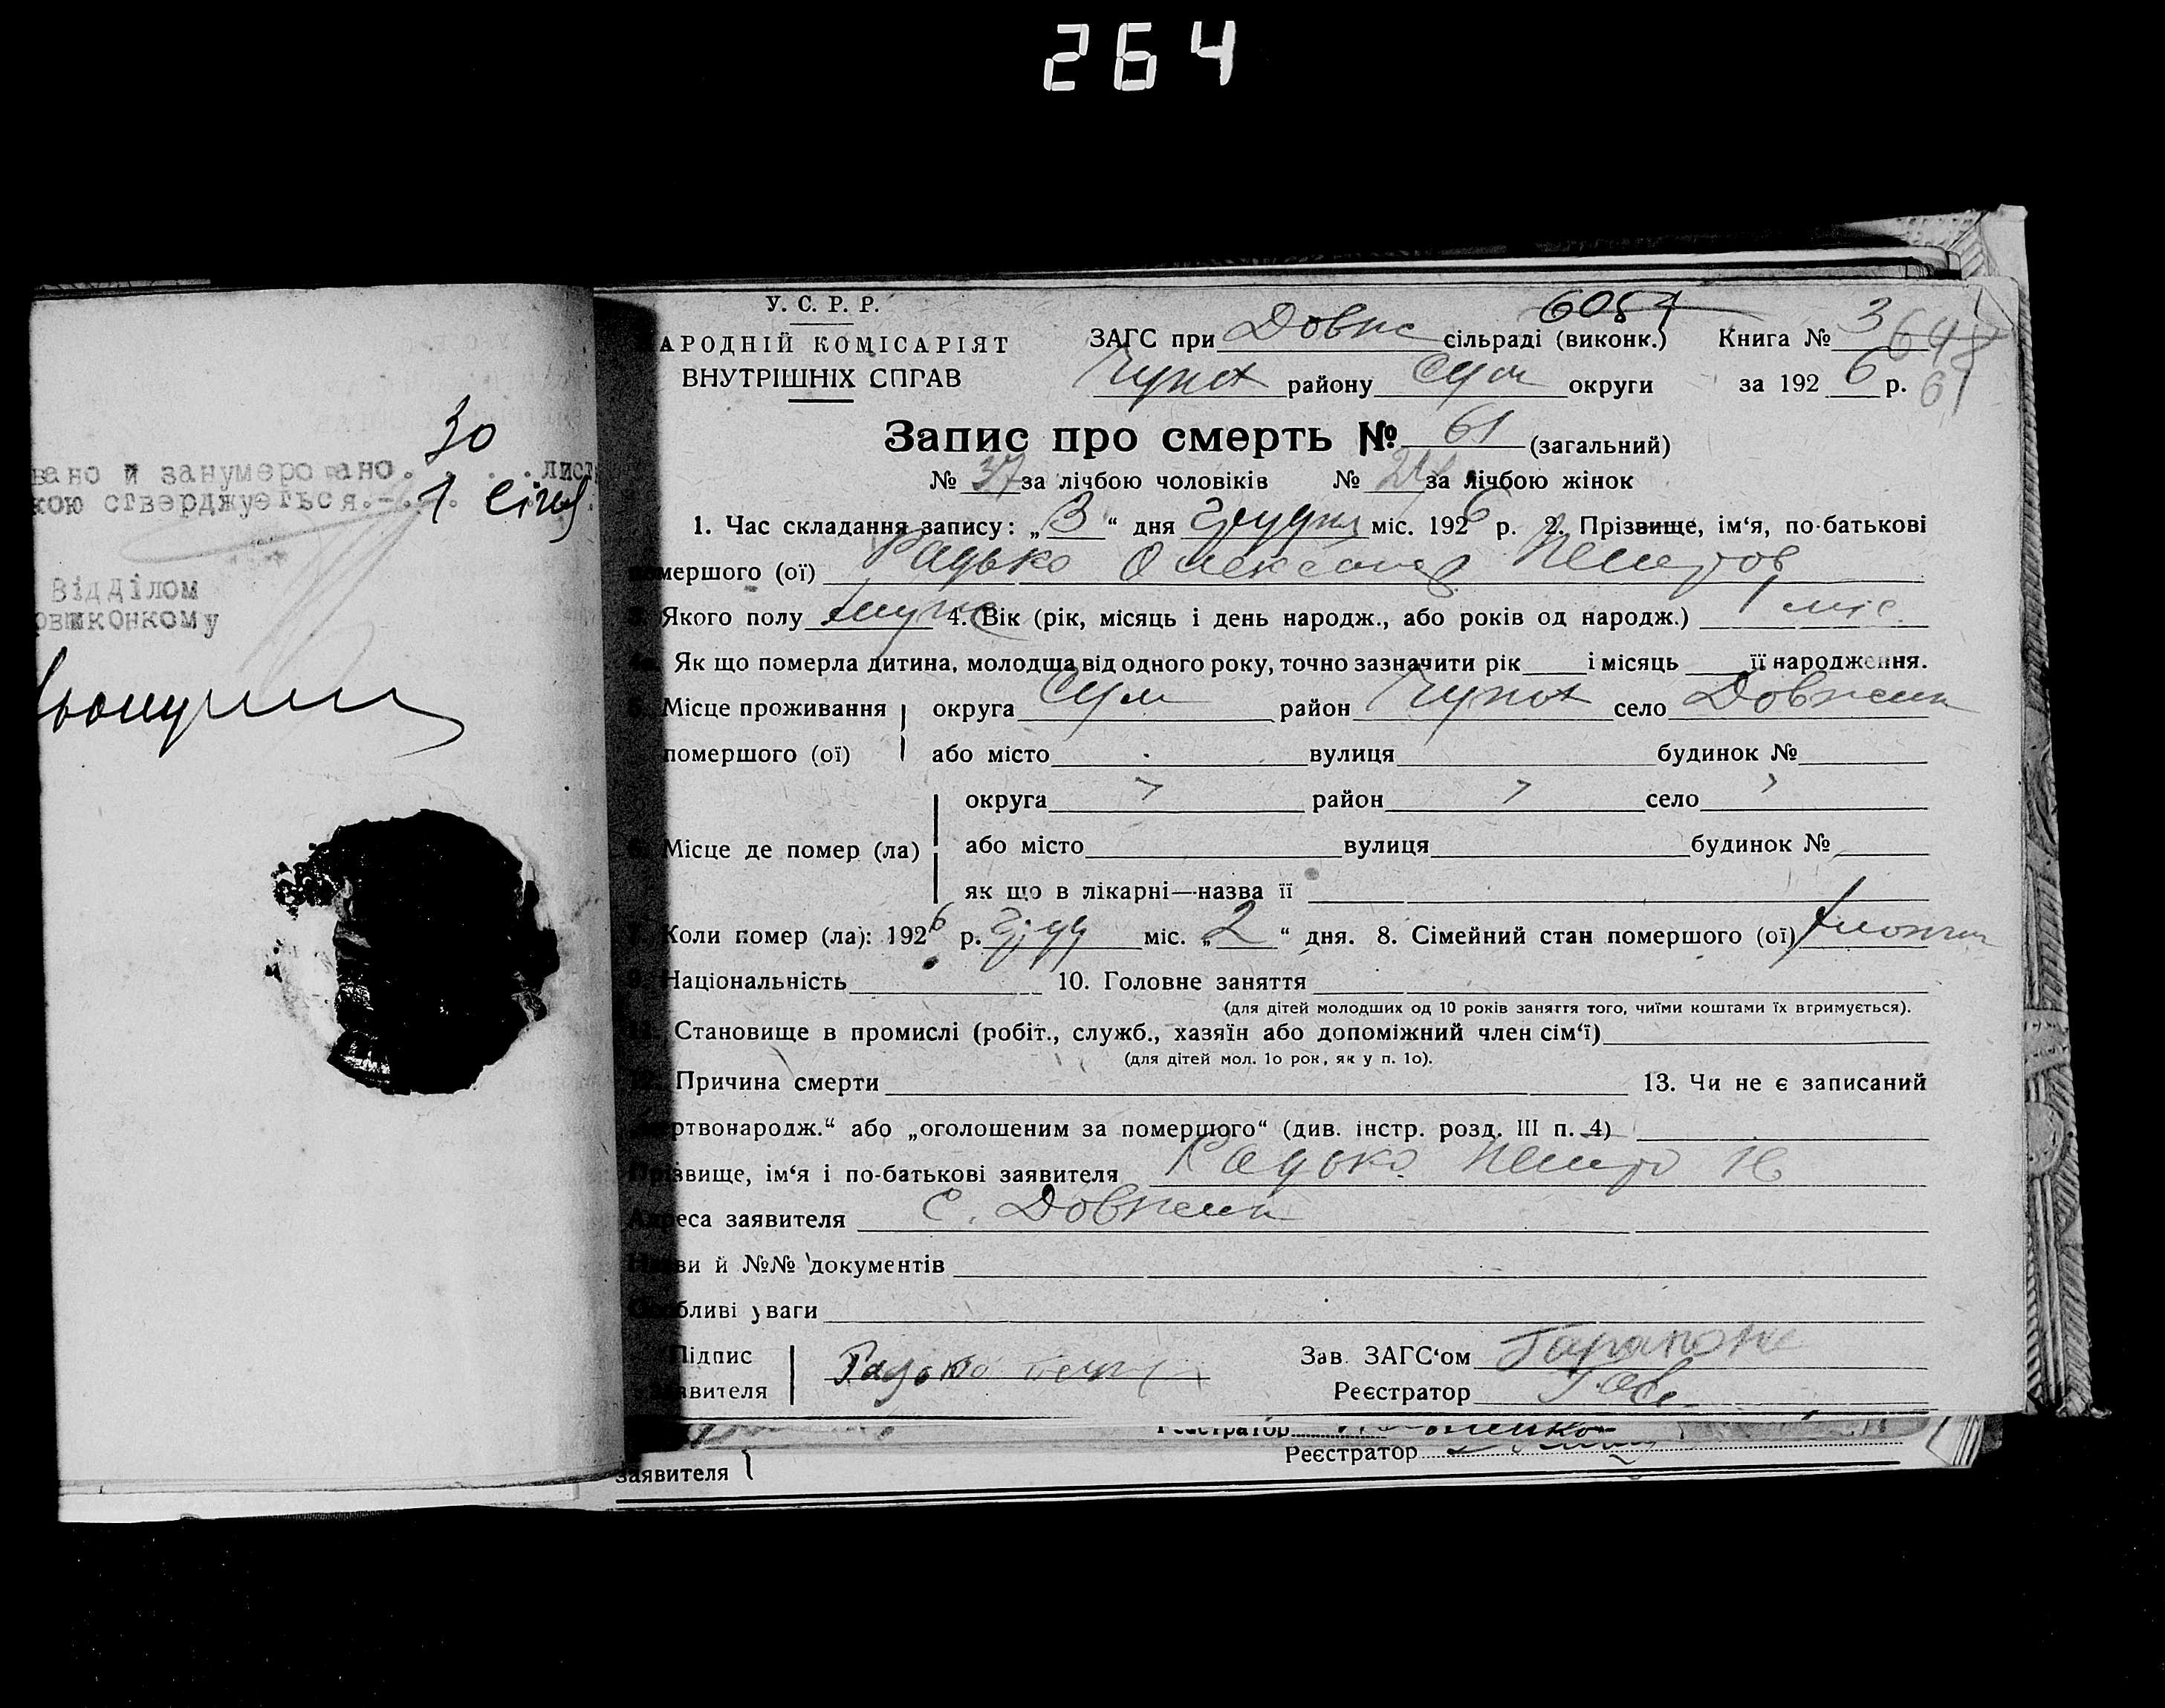 264
30
вано й занумеровано. . . . лист
кою стверджується.-. 1 січ
Відділом
овиконкому
У. С. Р. Р.
АРОДНІЙ КОМІСАРІЯТ
ВНУТРІШНІХ СПРАВ
ЗАГС при Довж сільраді (виконк.) Книга № 3
648
району Сум округи за 1926 р. 61
Запис про смерть № 61 (загальний)
№ 37 за лічбою чоловіків № 24 за лічбою жінок
1. Час складання запису: „3“ дня Грудня міс. 1926 р. 2. Прізвище, ім‘я, по-батькові
мершого (ої) Радько Олександр Петров
Якого полу муж 4. Вік (рік, місяць і день народж., або років од народж.) 1 міс
Як що померла дитина, молодша від одного року, точно зазначити рік і місяць її народження.
5. Місце проживання округа Сум район село Довжик
помершого (ої) або місто вулиця будинок №
округа район село
6. Місце де помер (ла) або місто вулиця будинок №
як що в лікарні—назва її
7. Коли помер (ла): 1926 р. груд міс. „2“ дня. 8. Сімейний стан помершого (ої)
9. Національність 10. Головне заняття
(для дітей молодших од 10 років заняття того, чиїми коштами їх втримується).
11. Становище в промислі (робіт., служб., хазяїн або допоміжний член сім‘ї)
(для дітей мол. 1о рок, як у п. 1о).
Причина смерти 13. Чи не є записаний
ртвонародж.“ або „оголошеним за помершого“ (див. інстр. розд. III п. 4)
Прізвище, ім‘я і по-батькові заявителя Радько Петро
Адреса заявителя с. Довжик
Назви й №№ документів
Особливі уваги
Підпис Радько Зав. ЗАГС‘ом
явителя Реєстратор
Реєстратор
Реєстратор
заявителя